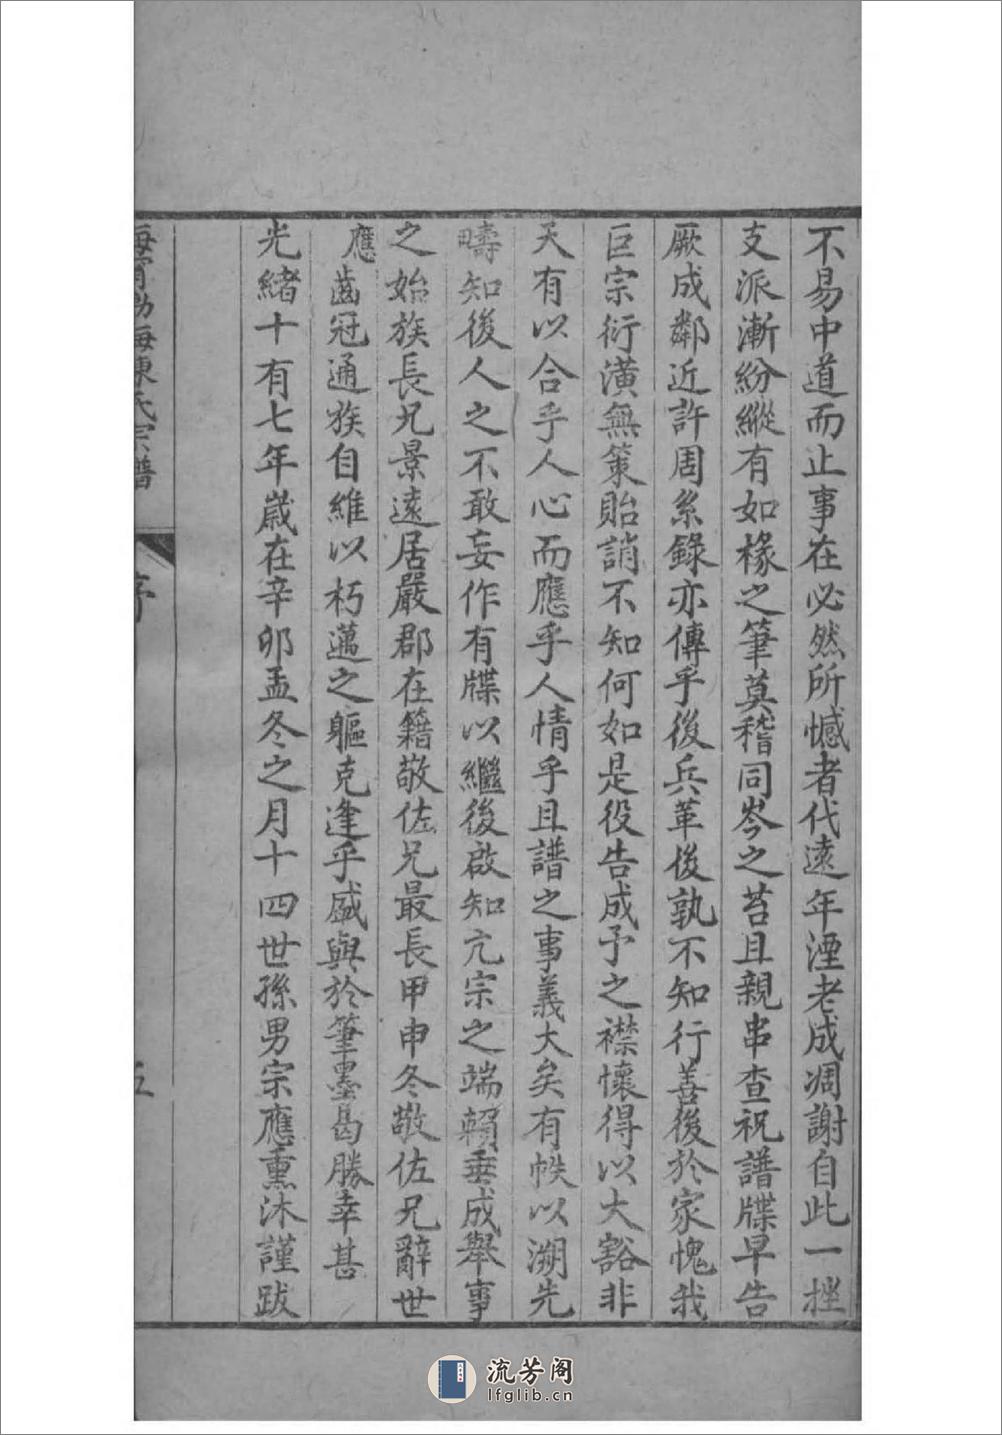 不易中道而止事在必然所憾者代遠年湮老成凋謝自此一挫
支派漸紛縱有如椽之筆莫稽同岑之苔且親串查祝譜牒早告
厥成鄰近許周系錄亦傳乎後兵革後孰不知行善後於家愧我
巨宗衍潢無策貽誚不知何如是役告成予之襟懷得以大豁非
天有以合乎人心而應乎人情乎且譜之事義大矣有帙以溯先
疇知後人之不敢妄作有牒以繼後啟知亢宗之端賴垂成舉事
之始族長兄景遠居嚴郡在籍敬佐兄最長甲申冬敬佐兄辭世
應齒冠通族自維以朽邁之軀克逢乎盛與於筆墨曷勝幸甚
光緒十有七年歲在辛卯孟冬之月十四世孫男宗應熏沐謹跋
海寧渤海陳氏宗譜
序
五
流芳阁
lfglib.cn